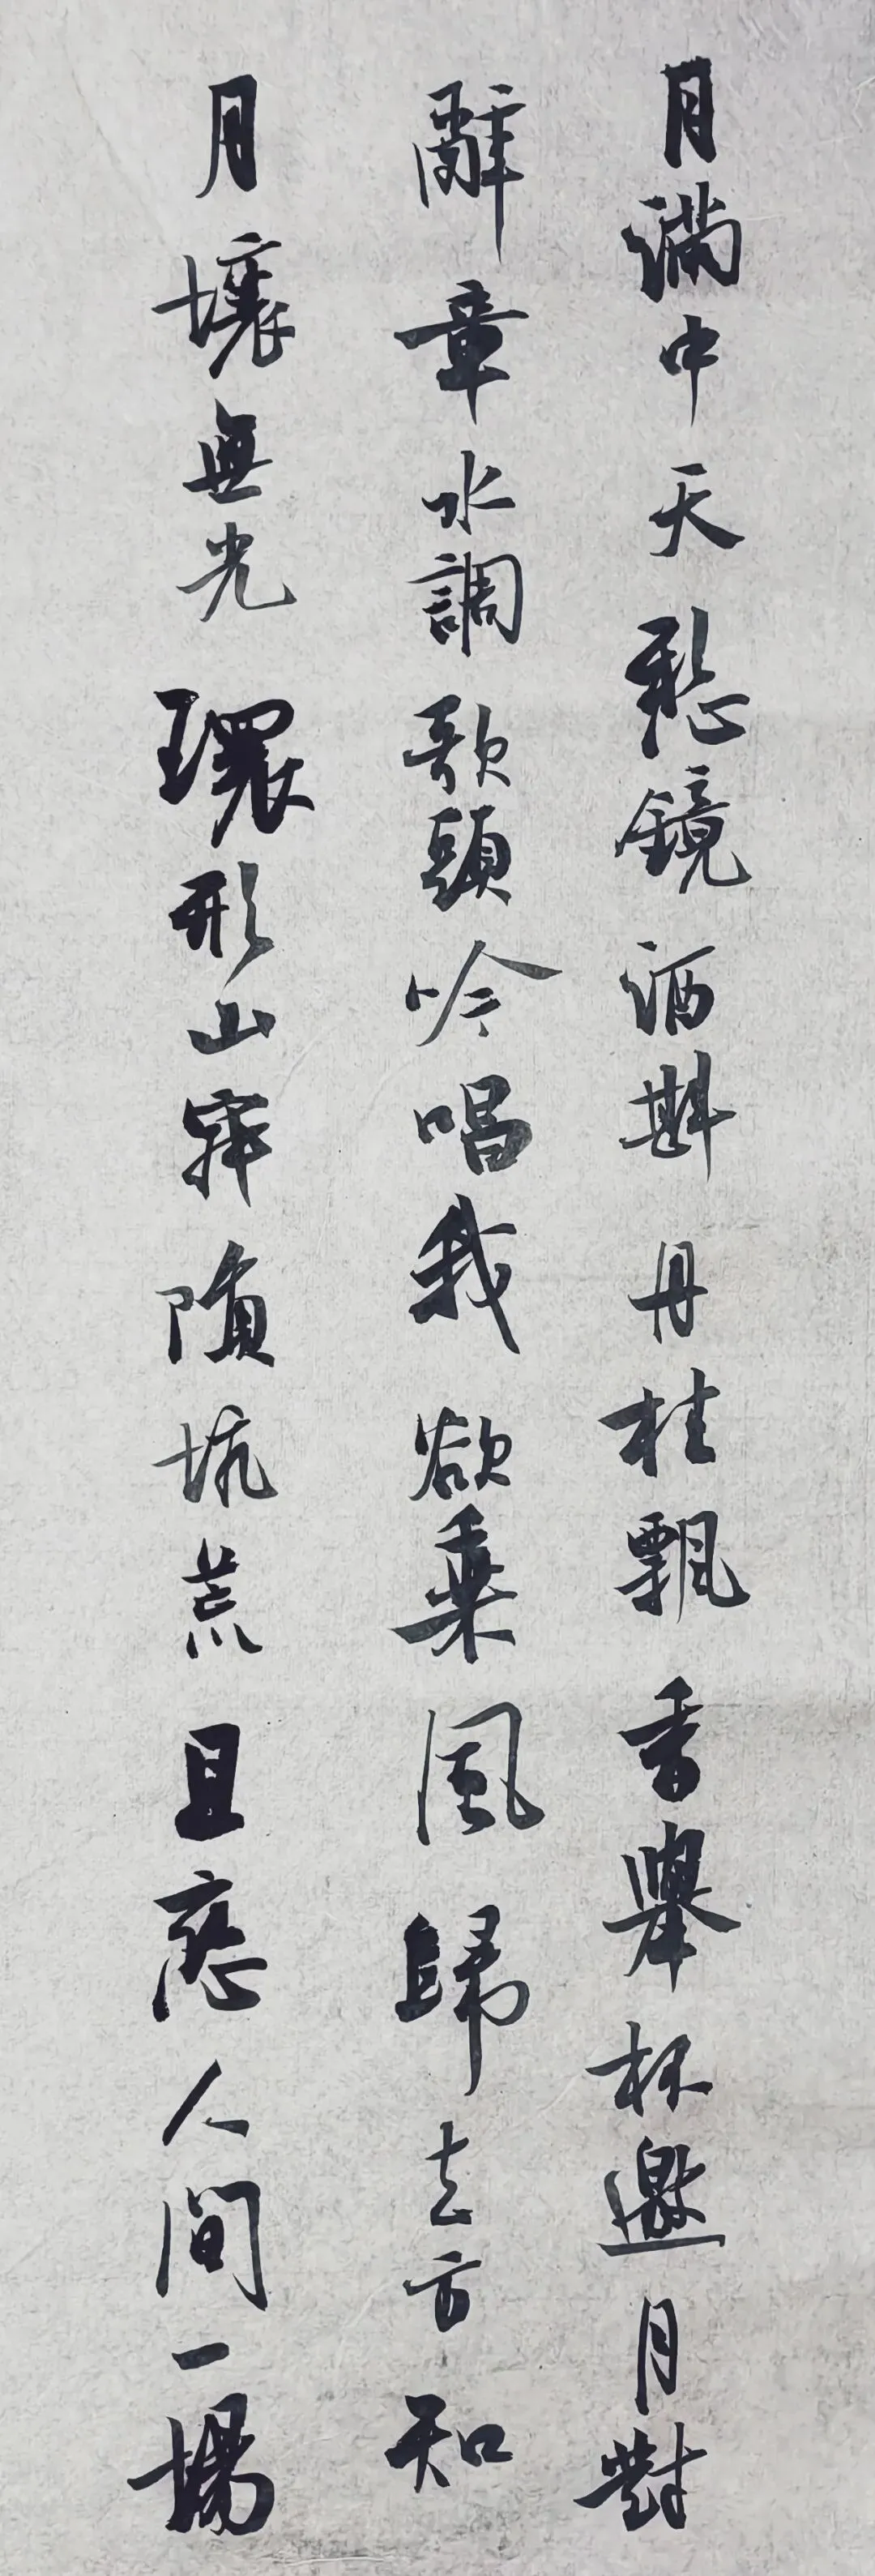 月滿中天愁鏡酒斟丹桂飄香舉杯邀月對
辭章水調歌頭吟唱我欲乘風歸去方知
月壤無光環形山寂隕坑荒且戀人間一場